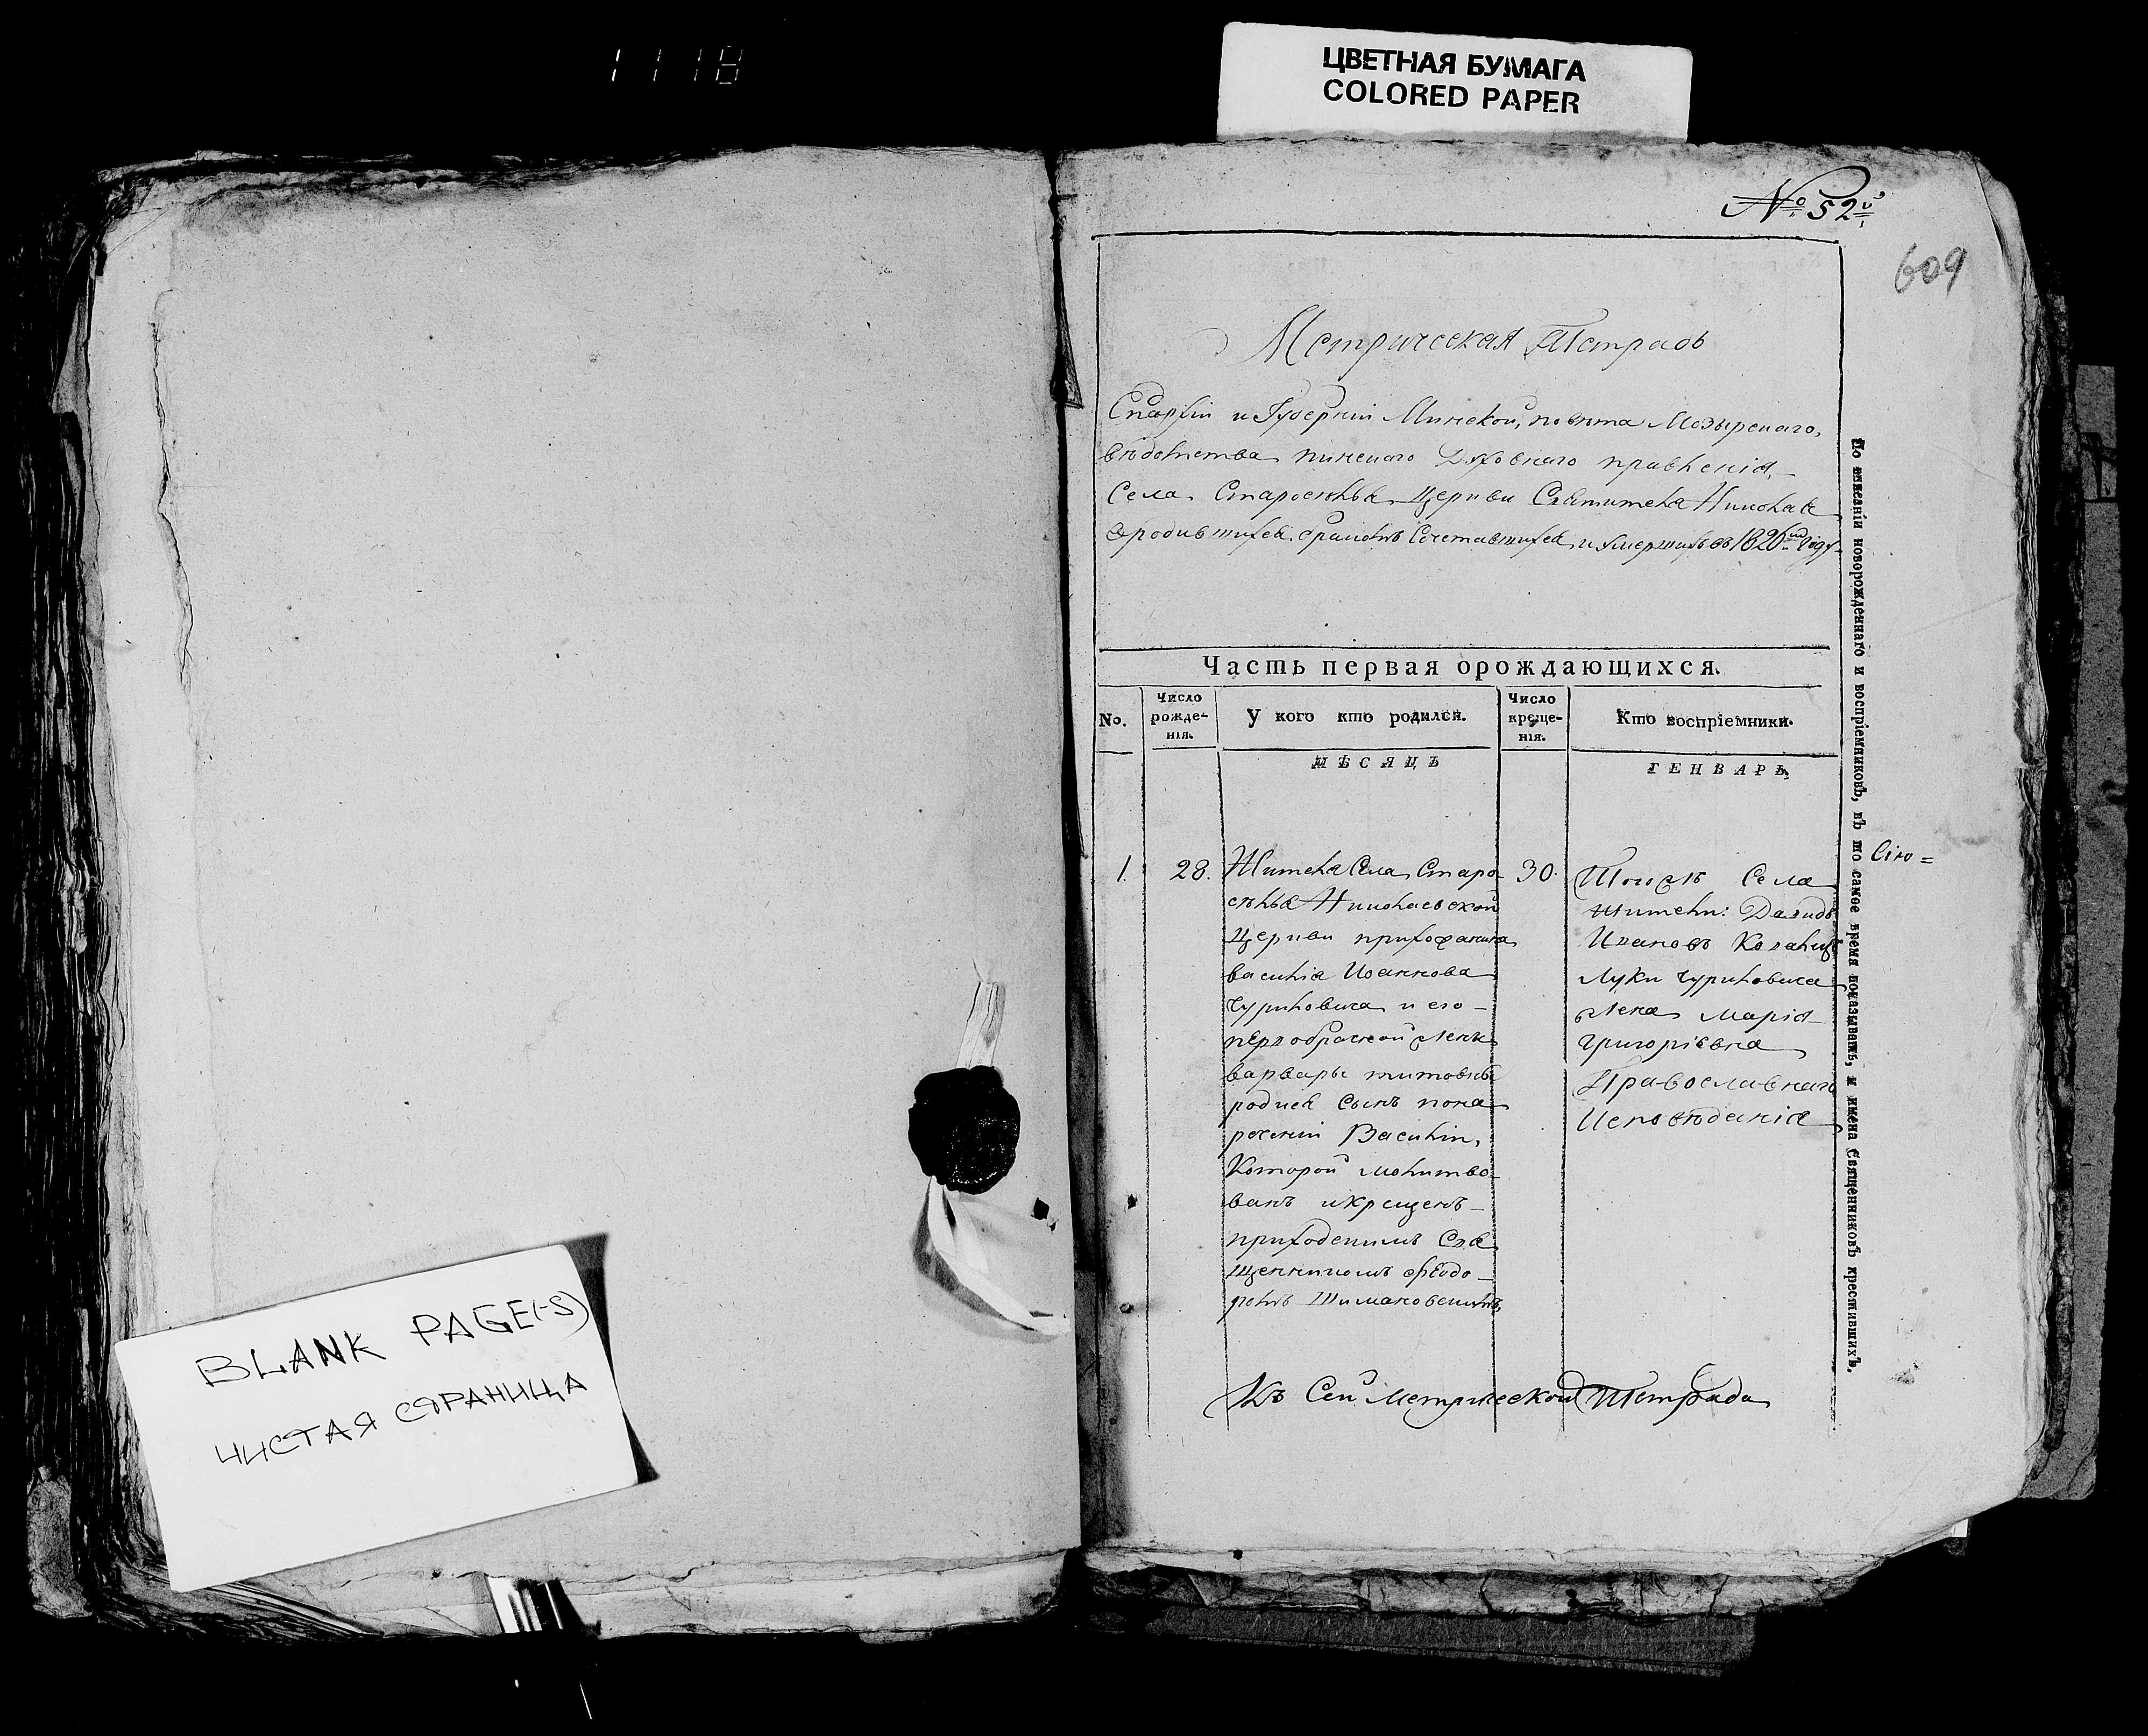 1118
ЦВЕТНАЯ БУМАГА
COLORED PAPER
№ 52й
609
Метрическая Тетрадь
Епархіи и Губерніи Минской, повѣта Мозырскаго,
вѣдомства пинскаго Духовнаго правленія,
Села Староселья Церкви Святителя Николая
о родившихся, бракомъ Сочетавшихся, и умершихъ въ 1826мъ году
Часть первая орождающихся.
No.
Число рожде-нія.
У кого кто родился.
Число креще-нія.
Кто воспріемники.
МѢСЯЦЪ
ГЕНВАРЬ
1.
28.
Жителя Села Старо-
селья Николаевской
Церкви прихожанина
василія Иоаннова
Чуриловича и его
первобрачной жены
варвары титовны
родися Сынъ пона
реченій Василій,
Которой молитво-
ванъ и крещенъ
приходскимъ Свя
щенникомъ Феодо-
ромъ Шимановскимъ
30.
Тогожъ Села
жители: Давидъ
Ивановъ
Луки Чуриловича
жена Марія
Григоріевна
Православнаго
Исповѣданія
Сію =
Къ Сей Метрической Тетради
По имяни новорожденнаго и воспріемниковъ, въ то самое время показывать, и имена Священниковъ крестившихъ.
BLANK PAGE(-S)
ЧИСТАЯ СТРАНИЦА